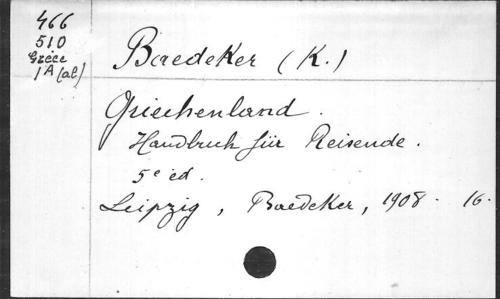 466
510
Grèce
1A (al)
Baedeker (K.)
Griechenland.
Handbuch für Reisende.
5e ed.
Leipzig, Baedeker, 1908. 16.